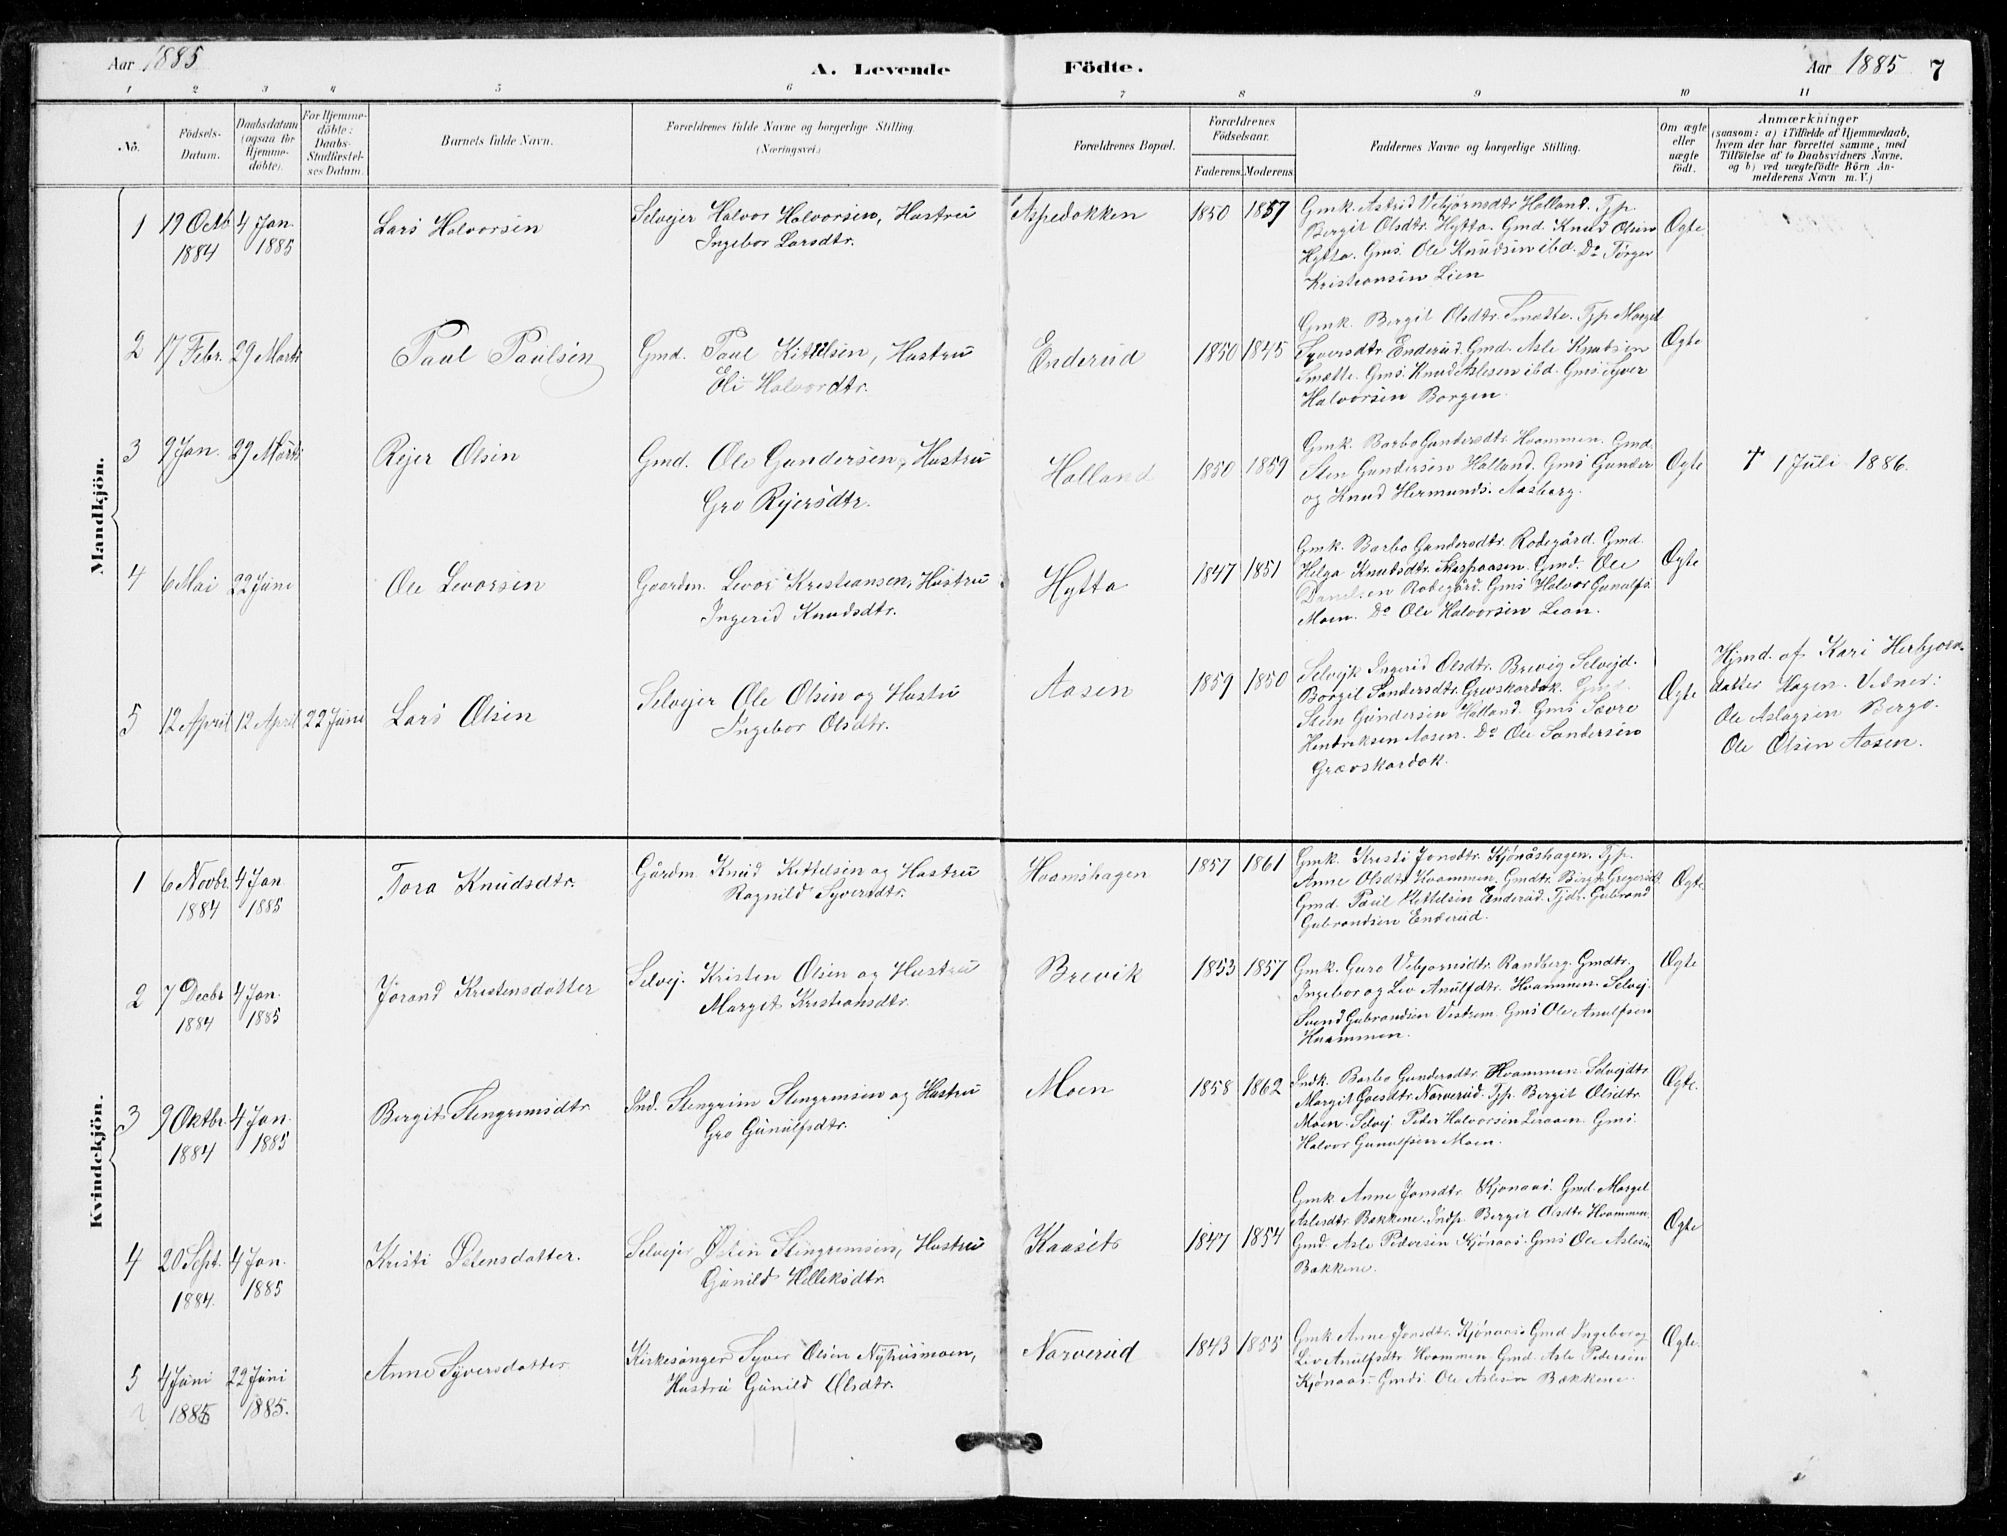 Aar 1885
A. Levende Födte.
Aar 1885 7
1 2 3 4 5 6 7 8 9 10 11
No.
Födsels-Datum.
Daabsdatum (ogsaa for Hjemmedöbte).
For Hjemmedöbte: Daabs-Stadfæstelses Datum.
Barnets fulde Navn.
Forældrenes fulde Navne og borgerlige Stilling.
(Næringsvei.)
Forældrenes Bopæl.
Forældrenes Födselsaar.
Faderens. Moderens.
Faddernes Navne og borgerlige Stilling.
Om ægte eller uægte födt.
Anmærkninger
(saasom: a) i Tilfælde af Hjemmedaab,
hvem der har forrettet samme, med
Tilföielse af to Daabsvidners Navne,
og b) ved uægtefödte Börn An-
melderens Navn m. V.)
Mandkjön.
1 19 Octb 1884 4 Jan. 1885 Lars Halvorsen
Selvejer Halvor Halvorsen, Hustru
Ingebor Larsdtr.
Aspedokken 1850 1857
Gmk. Astrid Vebjörnsdtr Holland. Pjp.
Bergit Olsdtr. Hytta. Gmd. Knud Olsen
Hytta. Gms. Ole Knudsen ibd. Do Törger
Kristiansen Lien
Ægte
2 17 Febr. 29 Marts Paul Paulsen
Gmd. Paul Kittilsen, Hustru
Eli Halvordtr.
Enderud 1850 1845
Gmk. Bergit Olsdtr. Smætte. Pjp Margit
Syversdtr. Enderud. Gmd. Asle Knudsen
Smætte. Gms. Knud Aslesen ibd. Gms Syver
Halvorsen Borgen.
Ægte
3 9 Jan. 29 Marts Rejer Olsen
Gmd. Ole Gundersen, Hustru
Gro Rejersdtr.
Holland 1850 1859
Gmk. Barbo Gundersdtr Hvammen. Gmd.
Sten Gundersen Holland. Gms Gunder
og Knud Hermunds. Aasberg.
Ægte
† 1 Juli 1886.
4 6 Mai 22 Juni Ole Levorsen
Gaardm. Levor Kristiansen, Hustru
Ingerid Knudsdtr.
Hytta 1847 1851
Gmk. Barbo Gundersdtr. Rodegård. Gmd.
Helga Knudsdtr. Aaspaasen. Gmd. Ole
Danielsen Rodegård. Gms Halvor Gunulfs.
Moen. Do Ole Halvorsen Lian.
Ægte
5 12 April 12 April 22 Juni Lars Olsen
Selvejer Ole Olsen og Hustru
Ingebor Olsdtr.
Aasen 1859 1850
Selvejk Ingerid Olsdtr. Brevig Selvejd.
Borgil Sandersdtr. Grevskardok. Gmd.
Steen Gundersen Holland. Gms Sævre
Hendriksen Aasen. Do Ole Sandersen
Grævskardok.
Ægte
Hjmd. af Kari Herbjørns-
datter Hagen. Vidner:
Ole Aslagsen Bergo.
Ole Olsen Aasen.
Kvindekjön.
1 6 Novbr. 1884 4 Jan 1885 Tora Knudsdtr.
Gårdm. Knud Kittelsen og Hustru
Ragnild Syversdtr.
Hvamshagen 1857 1861
Gmk. Kristi Jonsdtr. Kjönåshagen. Pjp.
Anne Olsdtr. Hvammen. Gmdtr. Birgit Gregerud.
Gmd. Paul Kittelsen Enderud. Tjdr. Gubrand
Gubrandsen Enderud.
Ægte
2 7 Decbr 1884 4 Jan. 1885 Jörand Kristensdatter
Selvej. Kristen Olsen og Hustru
Margit Kristiansdtr.
Brevik 1853 1857
Gmk. Guro Vebjornsdtr. Randberg. Gmdtr.
Ingebor og Liv Anulfdtr. Hvammen. Selvej.
Svend Gubrandsen Vestrem. Gms Ole Anulfsen
Hvammen.
Ægte
3 9 Oktbr. 1884 4 Jan. 1885 Bergit Stengrimsdtr
Ind. Stengrim Stengrimsen og Hustru
Gro Gunulfsdtr.
Moen 1858 1862
Indk. Barbo Gundersdtr. Hvammen. Selvejdtr
Margit Goesdtr. Norverud. Pjp. Bergit Olsdtr.
Moen. Selvej Peder Halvorsen Leraaen. Gms.
Halvor Gunulfsen Moen.
Ægte.
4 20 Sept. 1884. 4 Jan. 1885 Kristi Østensdatter.
Selvejer Østen Stengrimsen, Hustru
Gunild Helleksdtr.
Kaasits 1847 1854
Gmk Anne Jonsdtr. Kjonaas. Gmd. Margit
Aslesdtr. Bakkene. Indp. Bergit Olsdtr Hvammen.
Gmd. Asle Pedersen Kjönaas. Gms Ole Aslesen
Bakkene.
Ægte
5 4 Juni 1885 22 Juni 1885. Anne Syversdatter
Kirkesanger Syver Olsen Nyhusmoen,
Hustru Gunild Olsdtr.
Norverud 1843 1855
Gmk Anne Jonsdtr. Kjønaas. Gmd Ingebor og
Liv Anulfsdtr Hvammen. Gmd. Asle Pedersen
Kjönaas. Gmds. Ole Aslesen Bakkene.
Ægte.